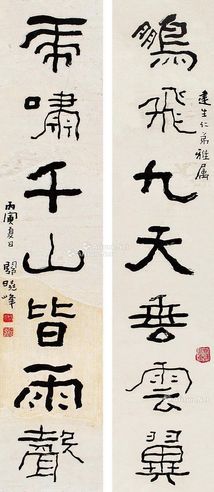 建生仁弟雅屬
鵬飛九天垂雲翼
虎嘯千山皆雨聲
丙寅夏日 曉峰